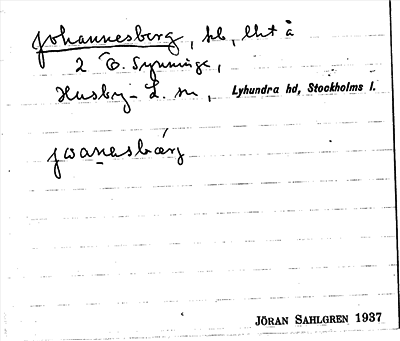 Johannesberg, hb, lht å
2 Ö. Synninge,
Husby-L. sn, Lyhundra hd, Stockholms l.
jωanasbærg
JÖRAN SAHLGREN 1937